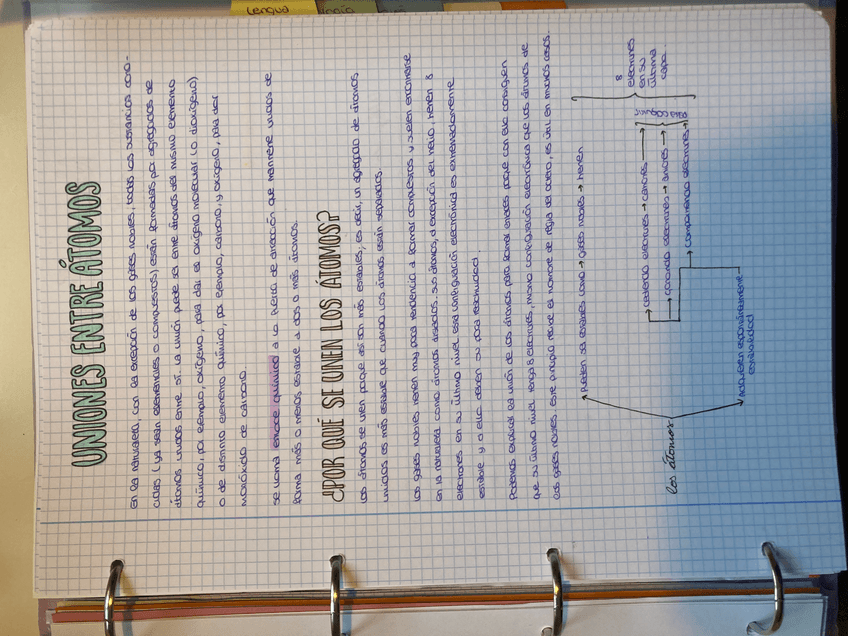 Lengua
UNIONES ENTRE ÁTOMOS
En la naturaleza, con la excepción de los gases nobles, todas las sustancias cono-
cidas (ya sean elementales o compuestos) están formadas por agregados de
átomos unidos entre sí. La unión puede ser entre átomos del mismo elemento
químico, por ejemplo, oxígeno, para dar el oxígeno molecular (o dioxígeno)
o de distinto elemento químico, por ejemplo, carbono, y oxígeno, para dar
monóxido de carbono.
Se llama enlace químico a la fuerza de atracción que mantiene unidos de
forma más o menos estable a dos o más átomos.
¿POR QUÉ SE UNEN LOS ÁTOMOS?
Los átomos se unen porque así son más estables; es decir, un agregado de átomos
unidos es más estable que cuando los átomos están separados.
Los gases nobles tienen muy poca tendencia a formar compuestos y suelen encontrarse
en la naturaleza como átomos aislados. Sus átomos, a excepción del helio, tienen 8
electrones en su último nivel. Esta configuración electrónica es extremadamente
estable y a ella deben su poca reactividad.
Podemos explicar la unión de los átomos para formar enlaces porque con ella consiguen
que su último nivel tenga 8 electrones, misma configuración electrónica que los átomos de
los gases nobles. Este principio recibe el nombre de regla del octeto, es útil en muchos casos.
los átomos
Pueden ser estables como → gases nobles → tienen
8
electrones
en su
última
capa.
cediendo electrones → cationes
ganando electrones → aniones
compartiendo electrones
Adquieren espontáneamente
estabilidad